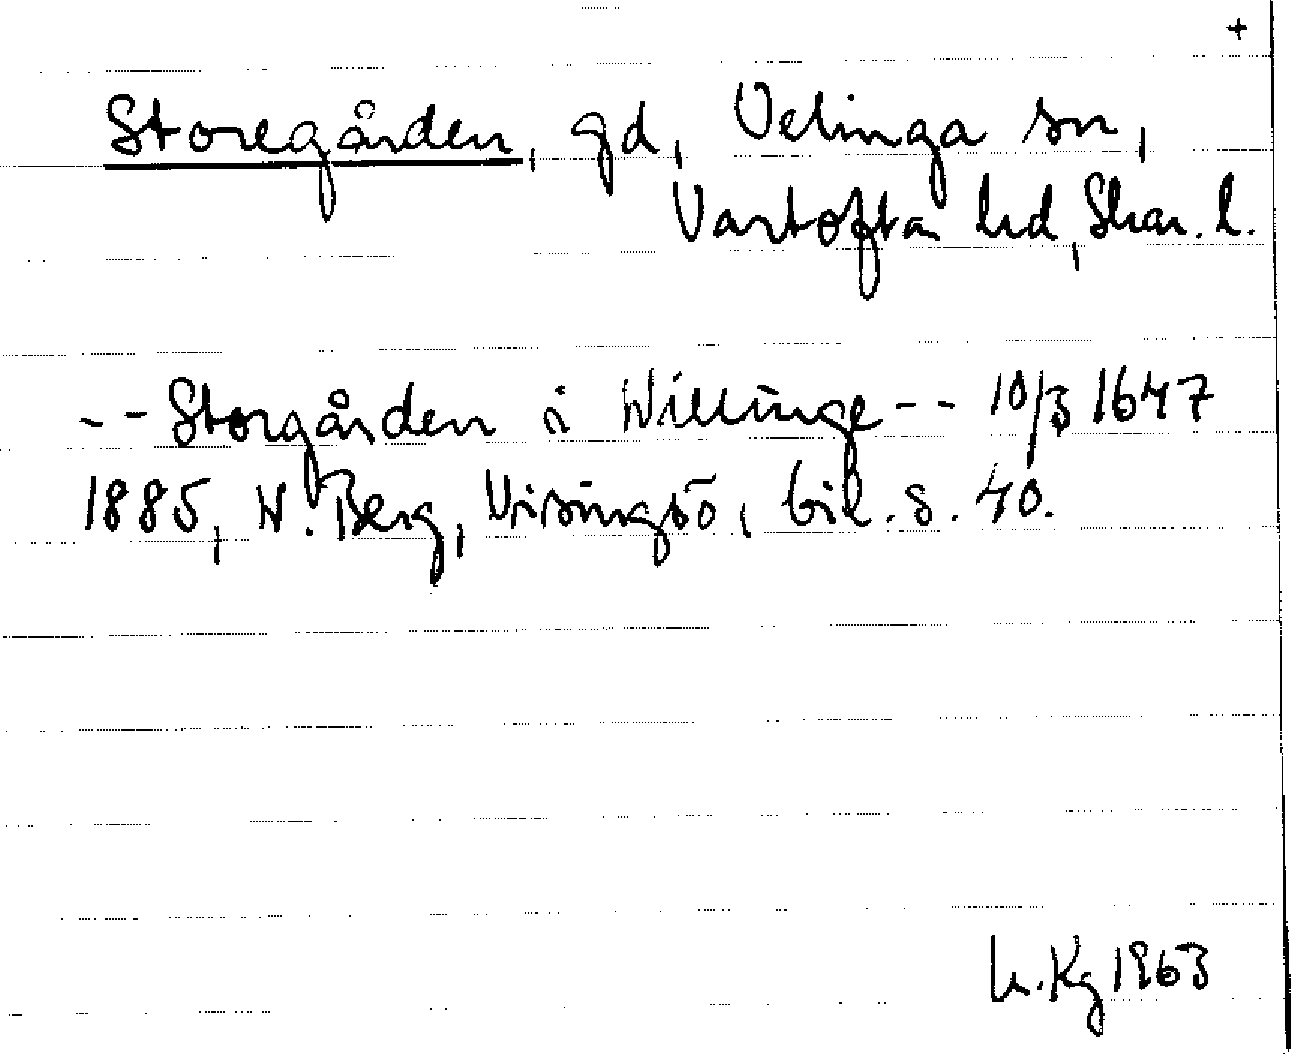 +
Storegården, gd, Velinga sn,
Vartofta hd, Skar. l.
-- Storgården i Willinge -- 10/3 1647
1885, W. Berg, Visingsö, bil. s. 40.
Kg 1963